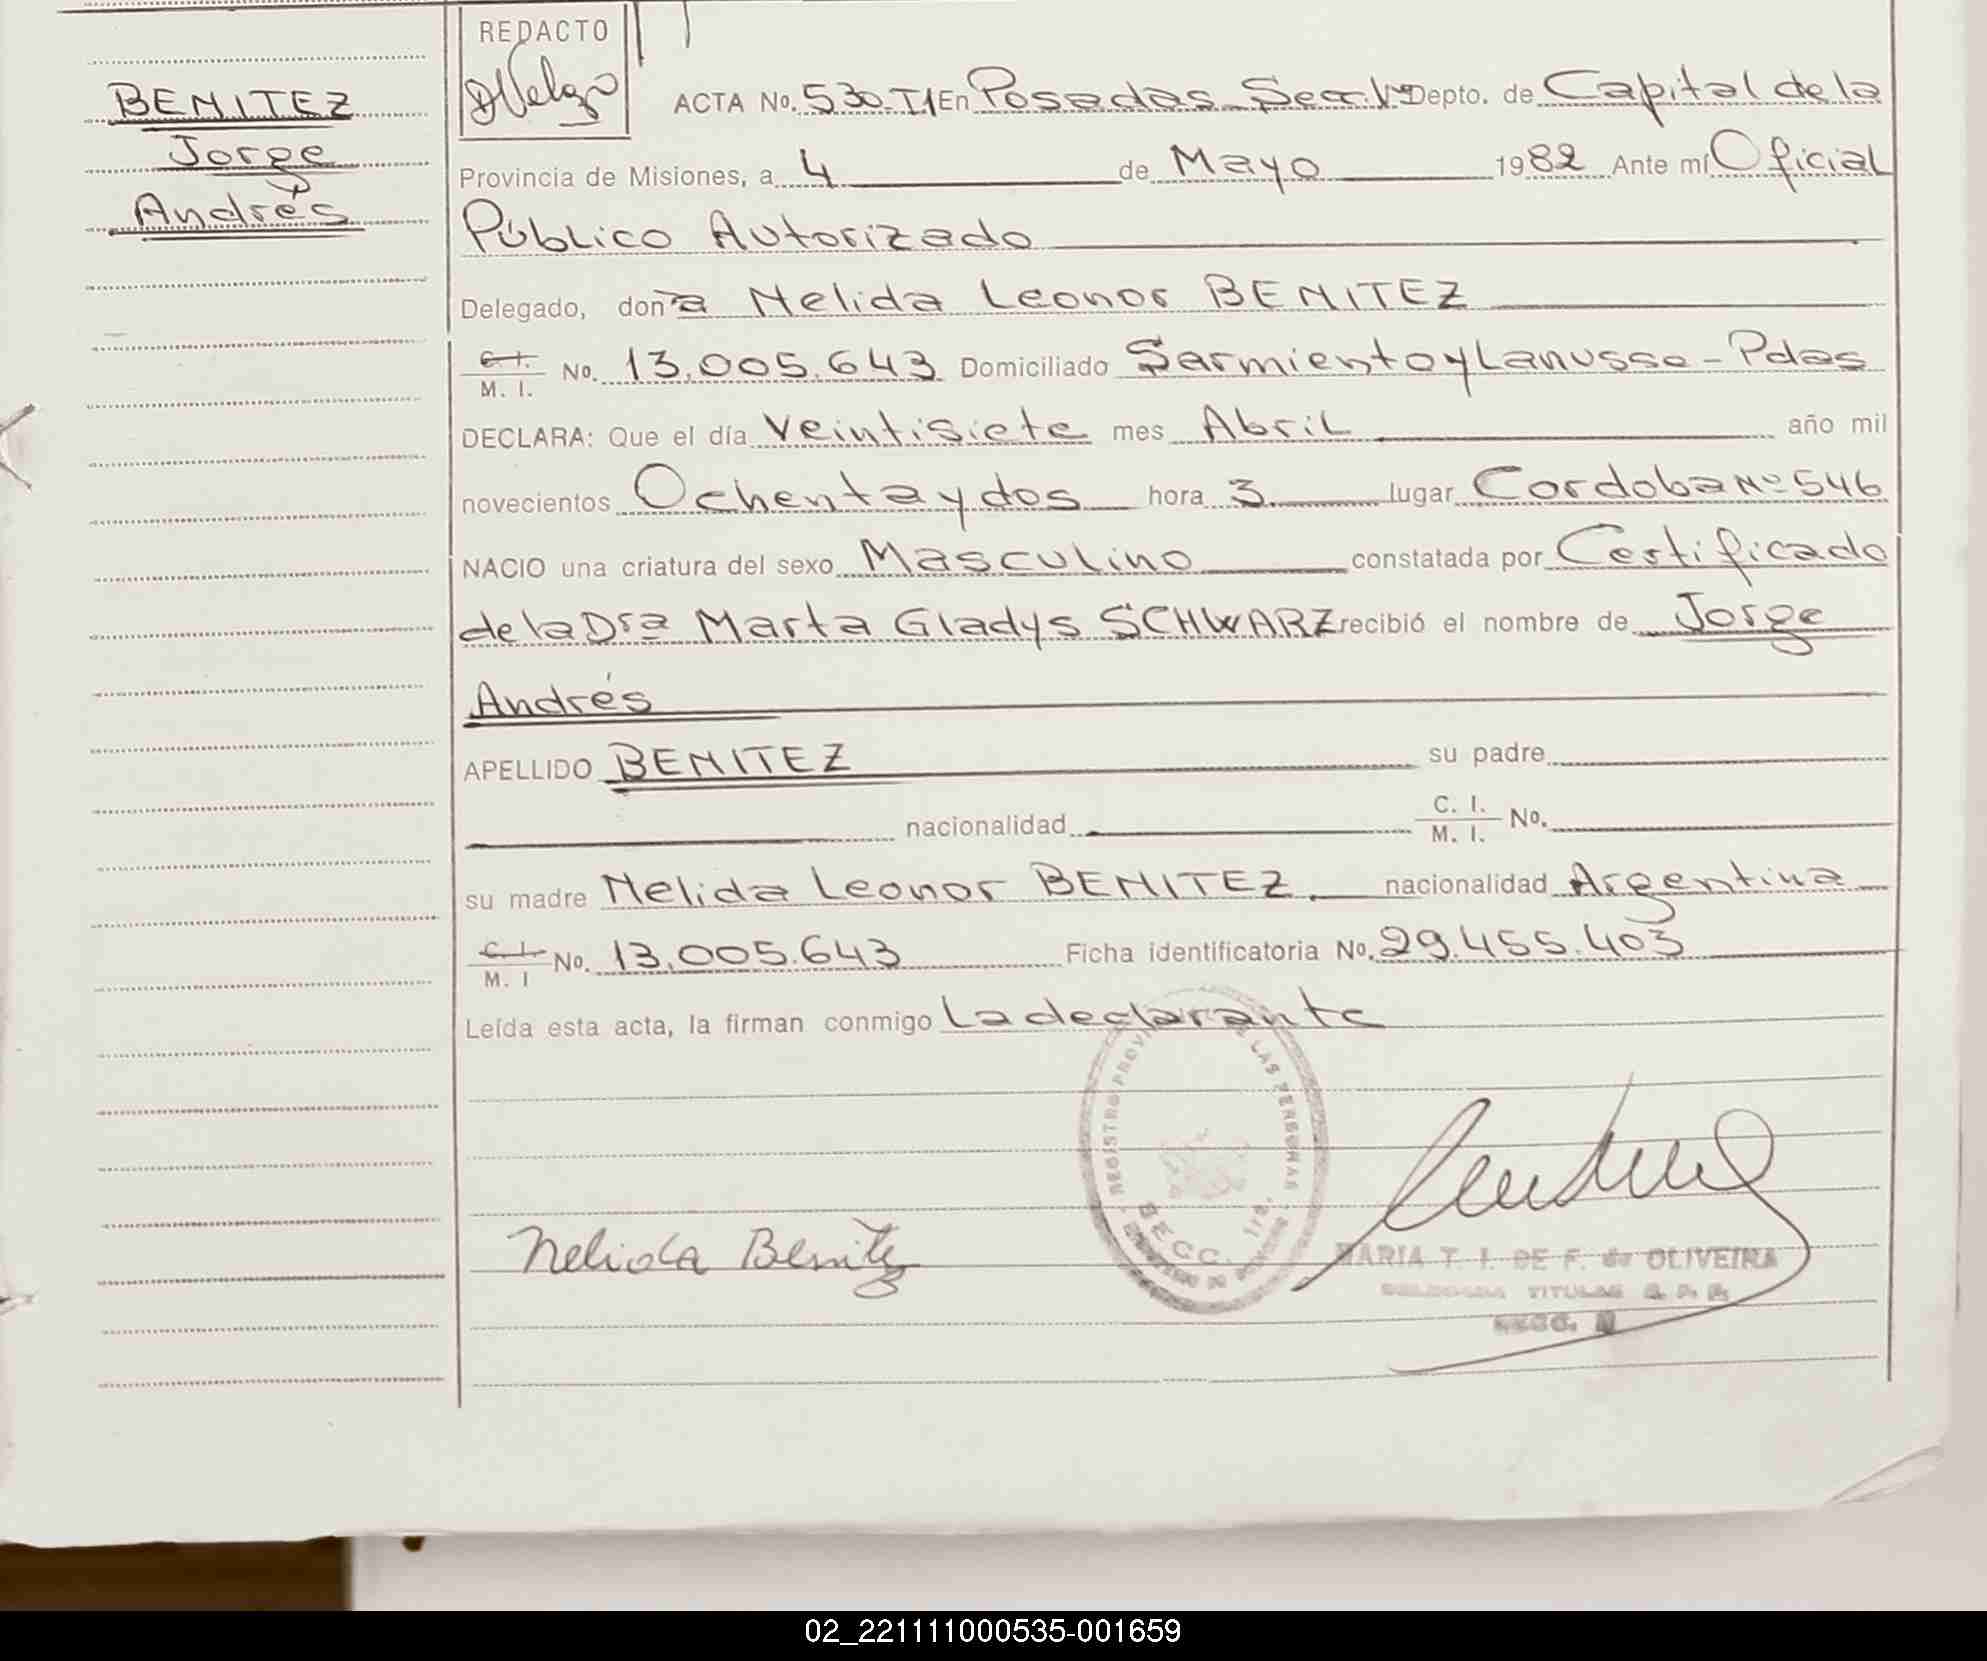 REDACTO
BENITEZ
Jorge
Andrés
ACTA No. 530-T1 En Posadas Secc. 1ra Depto. de Capital de la
Provincia de Misiones, a 4 de Mayo 1982 Ante mí Oficial
Público Autorizado
Delegado, doña Nelida Leonor BENITEZ
C. I. / M. I. No. 13.005.643 Domiciliado Sarmiento y Lanusse - Pdas
DECLARA: Que el día Veintisiete mes Abril año mil
novecientos Ochenta y dos hora 3 lugar Cordoba Nº 546
NACIO una criatura del sexo Masculino constatada por Certificado
de la Dra Marta Gladys SCHWARZ recibió el nombre de Jorge
Andrés
APELLIDO BENITEZ su padre
nacionalidad C. I. / M. I. No.
su madre Nelida Leonor BENITEZ nacionalidad Argentina
C. I. / M. I No. 13.005.643 Ficha identificatoria No. 29.455.403
Leída esta acta, la firman conmigo La declarante
REGISTRO PROV DE LAS PERSONAS
SECC. 1ra.
Nelida Benitez
MARIA T. I. DE F. de OLIVEIRA
DELEGADA TITULAR R. P. P.
SECC.
02_221111000535-001659